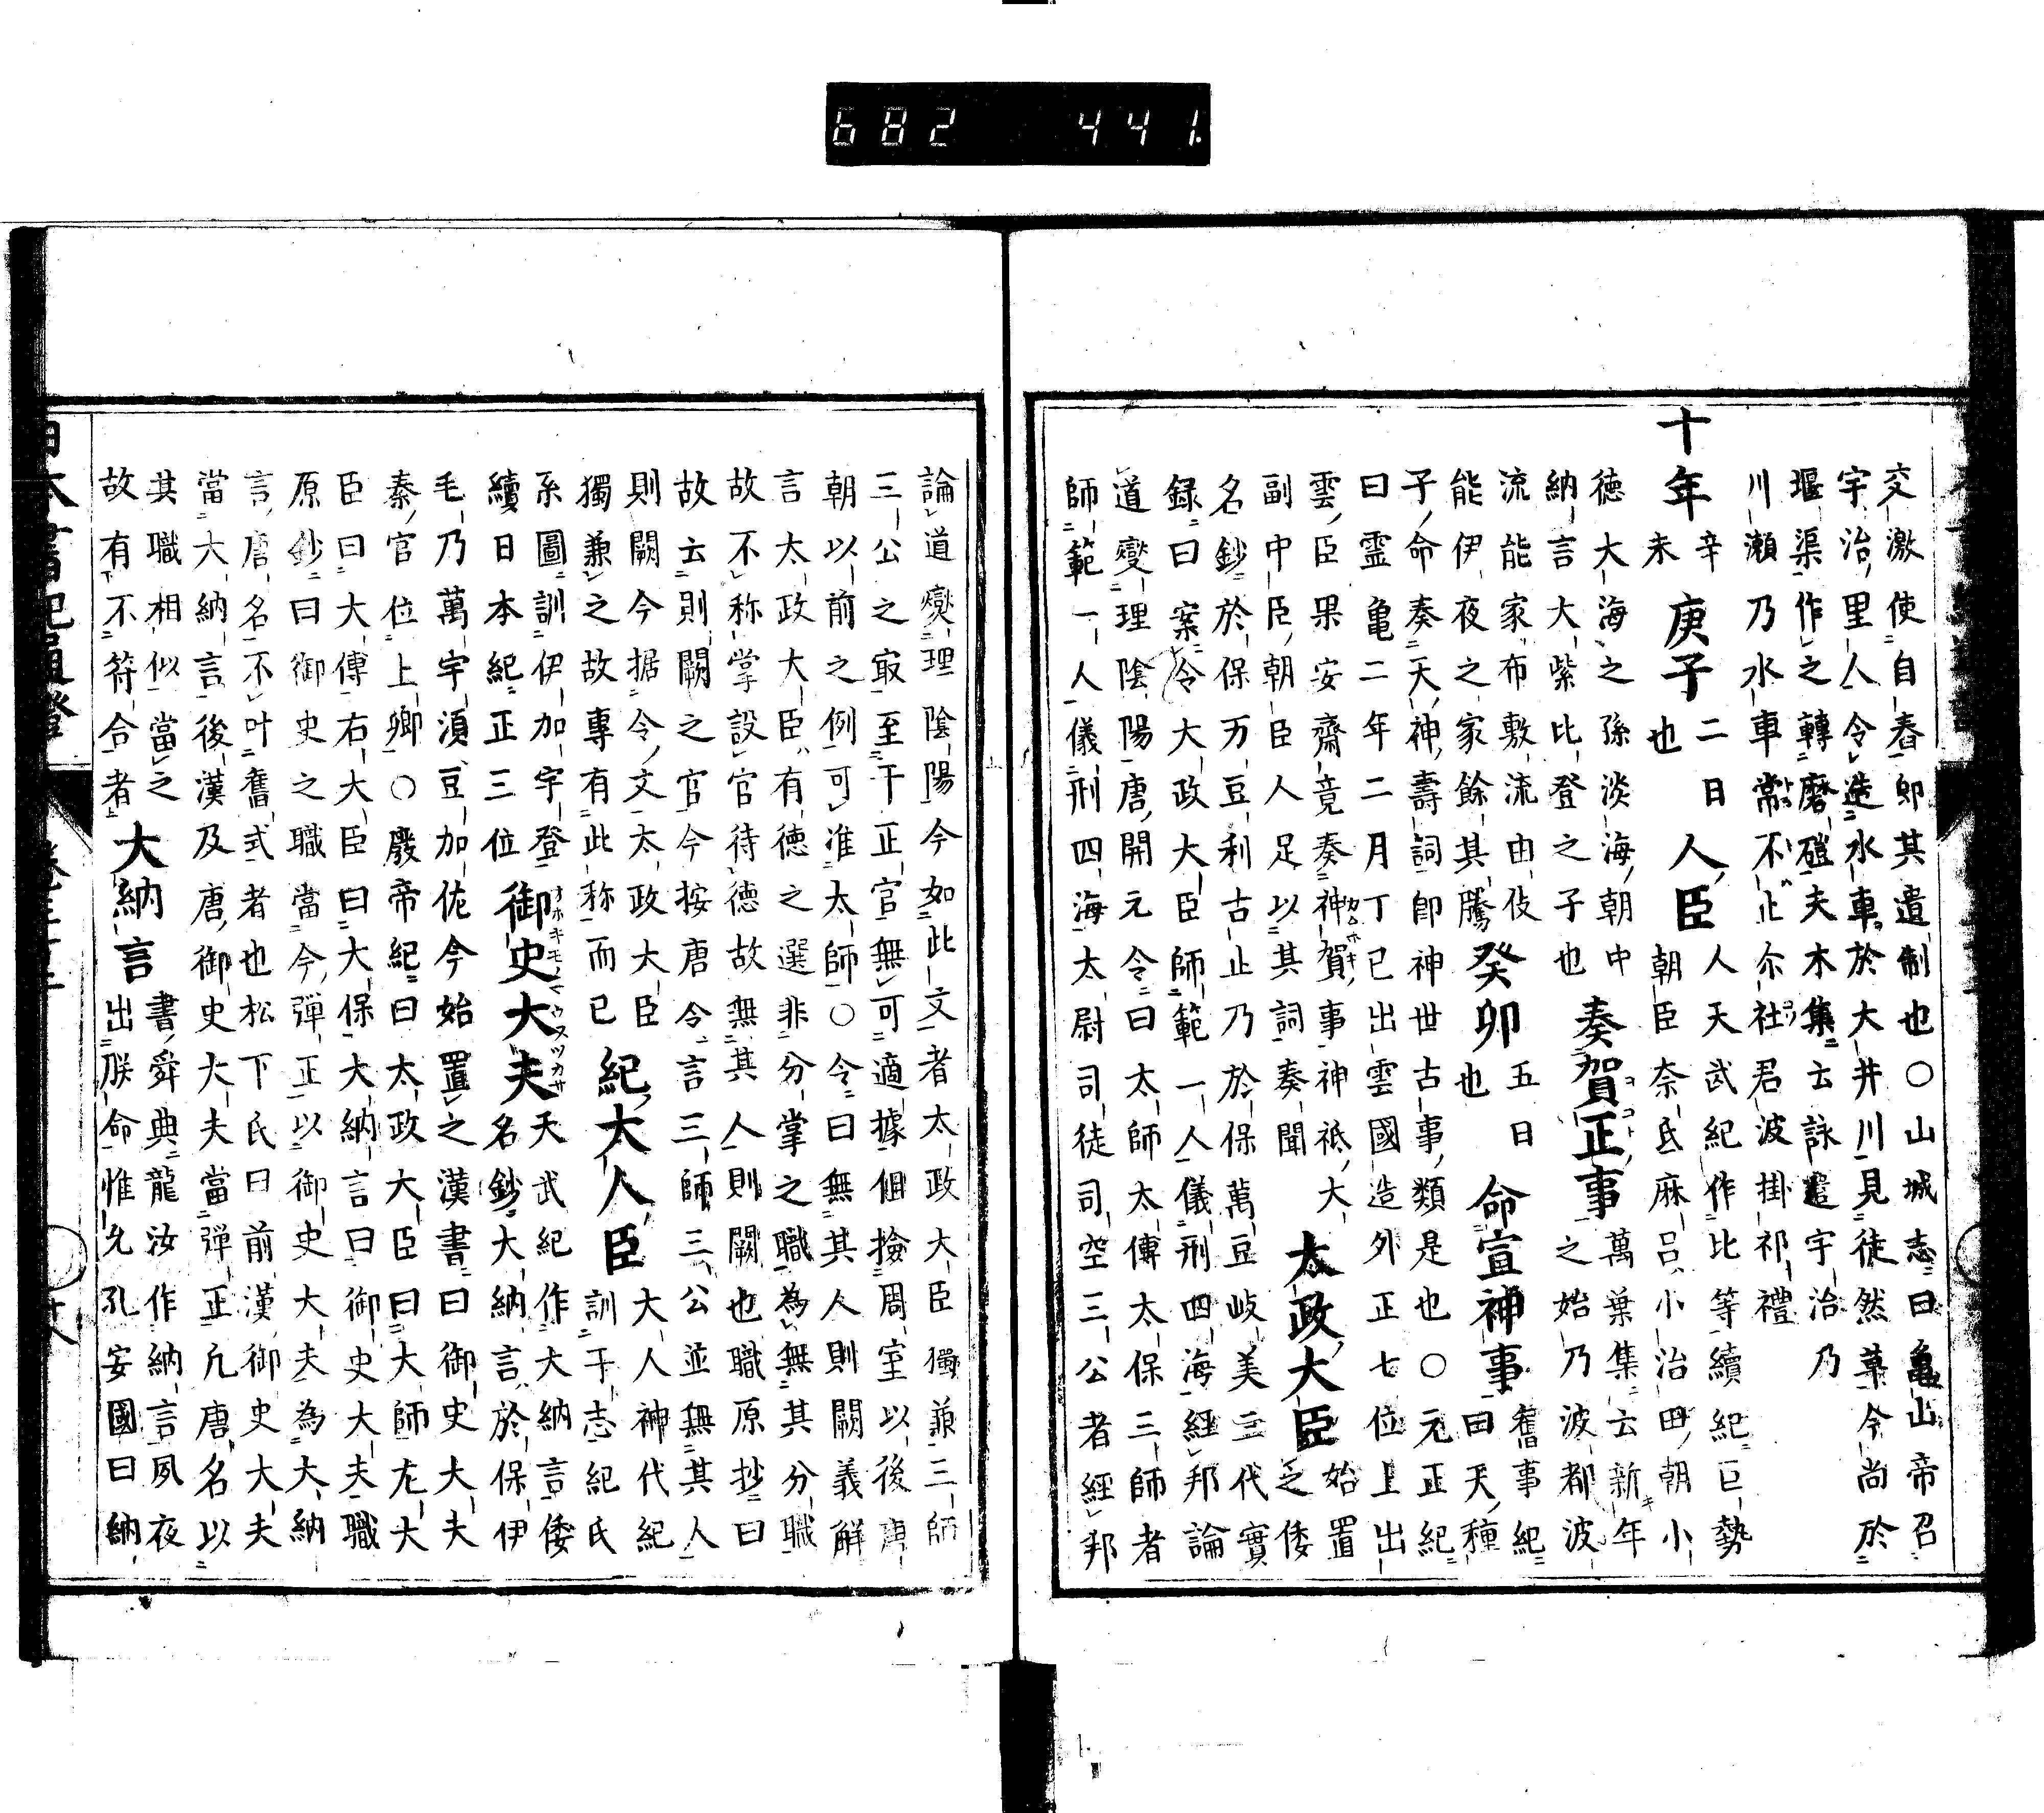 682 441.
交激使自舂卽其遺制也○山城志曰亀山帝召
宇治里人令造水車於大井川見徒然草今尚於
堰渠作之轉磨磑夫木集云詠遣宇治乃
川瀬乃水車常不止尒社君波掛祁禮
十年辛未庚子二日也人臣人天武紀作比等續紀巨勢朝臣奈氐麻呂小治田朝小
徳大海之孫淡海朝中
納言大紫比登之子也奏賀正事萬葉集云新年之始乃波都波
流能家布敷流由伎
能伊夜之家餘其騰癸卯五日也命宣神事舊事紀曰天種
子命奏天神壽詞卽神世古事類是也○元正紀
曰霊亀二年二月丁巳出雲國造外正七位上出
雲臣果安齋竟奏神賀事神祇大
副中臣朝臣人足以其詞奏聞太政大臣始置之倭
名鈔於保万豆利古止乃於保萬豆岐美三代實
録曰案令大政大臣師範一人儀刑四海經邦論
道燮理陰陽唐開元令曰太師太傅太保三師者
師範一人儀刑四海太尉司徒司空三公者經邦
論道燮理陰陽今如此文者太政大臣獨兼三師
三公之冣至干正官無可適據但撿周室以後唐
朝以前之例可准太師○令曰無其人則闕義解
言太政大臣有徳之選非分掌之職為無其分職
故不称掌設官待德故無其人則闕也職原抄曰
故云則闕之官今按唐令言三師三公並無其人
則闕今据令文太政大臣
獨兼之故專有此称而已紀大人臣大人神代紀訓于志紀氏
系圖訓伊加宇登
續日本紀正三位御史大夫天武紀作大納言倭名鈔大納言於保伊
毛乃萬宇湏豆加佐今始置之漢書曰御史大夫
秦官位上卿○廢帝紀曰太政大臣曰大師左大
臣曰大傅右大臣曰大保大納言曰御史大夫職
原鈔曰御史之職當今弾正以御史大夫為大納
言唐名不叶舊式者也松下氏曰前漢御史大夫
當大納言後漢及唐御史大夫當弾正凢唐名以
其職相似當之
故有不符合者大納言書舜典龍汝作納言夙夜出朕命惟允孔安國曰納